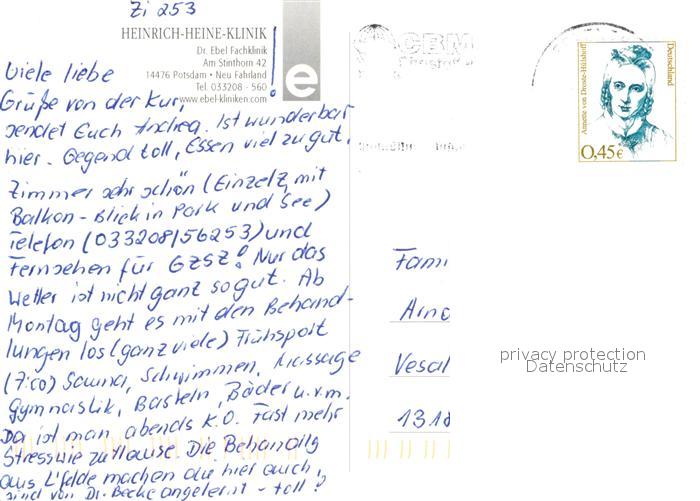 Zi 253
HEINRICH-HEINE-KLINIK
Dr. Ebel Fachklinik
Am Stinthorn 42
14476 Potsdam • Neu Fahrland
Tel. 033208 - 560
www.ebel-kliniken.com
e
Viele liebe
Grüße von der Kur,
sendet Euch Andrea. Ist wunderbar
hier. Gegend toll, Essen viel zu gut,
Zimmer sehr schön (Einzelz. mit
Balkon - Blick in Park und See)
Telefon (033208/56253) und
Fernsehen für GZSZ! Nur das
Wetter ist nicht ganz so gut. Ab
Montag geht es mit den Behand-
lungen los (ganz viele) Frühsport
(7:00) Sauna, Schwimmen, Massage
Gymnastik, Basteln, Bäder u.v.m.
Da ist man abends K.O. Fast mehr
Stress wie zuHause. Die Behandlg
aus L'felde machen die hier auch,
sind von Dr. Becke angelernt - toll!
CBM
Annette von Droste-Hülshoff
Deutschland
0,45€
Fami
Arno
Vesal
1318
privacy protection
Datenschutz